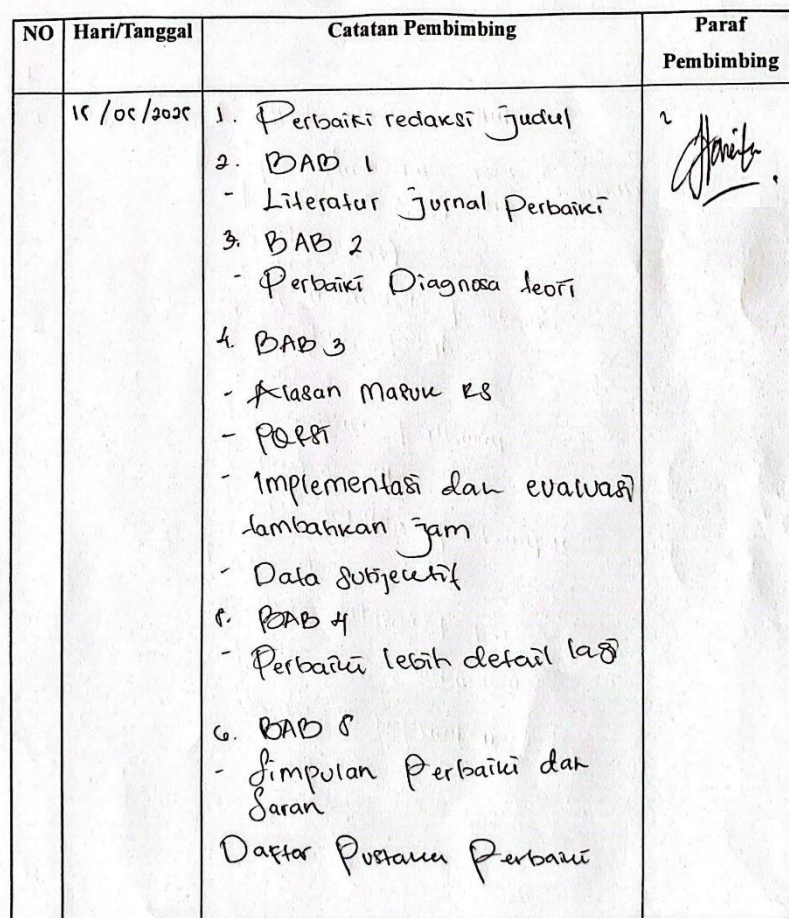 NO Hari/Tanggal Catatan Pembimbing Paraf Pembimbing
15/05/2025 1. Perbaiki redaksi judul
2. BAB 1
- Literatur jurnal Perbaiki
3. BAB 2
- Perbaiki Diagnosa teori
4. BAB 3
- Alasan Masuk RS
- PQRST
- Implementasi dan evaluasi
tambahkan jam
- Data Subjecektif
5. BAB 4
- Perbaiki lebih detail lagi
6. BAB 5
- Simpulan Perbaiki dan
Saran
Daftar Pustaka Perbaiki